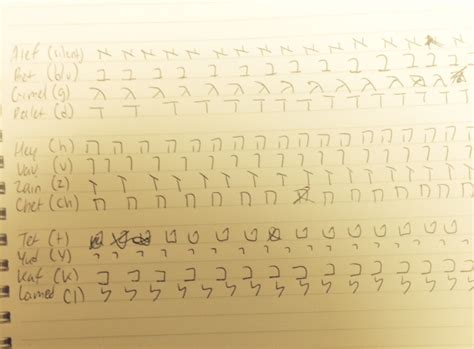 Alef (silent) א א א א א א א א א א א א א א א
Bet (b/v) ב ב ב ב ב ב ב ב ב ב ב ב ב ב
Gimel (g) ג ג ג ג ג ג ג ג ג ג ג ג ג ג
Dalet (d) ד ד ד ד ד ד ד ד ד ד ד ד ד ד
Hey (h) ה ה ה ה ה ה ה ה ה ה ה ה ה ה ה
Vav (v) ו ו ו ו ו ו ו ו ו ו ו ו ו ו ו
Zain (z) ז ז ז ז ז ז ז ז ז ז ז ז ז ז
Chet (ch) ח ח ח ח ח ח ח ח ח ח ח ח ח
Tet (t) ט ט ט ט ט ט ט ט ט ט
Yud (y) י י י י י י י י י י י י י י
Kaf (k) כ כ כ כ כ כ כ כ כ כ כ כ כ כ כ
Lamed (l) ל ל ל ל ל ל ל ל ל ל ל ל ל ל ל